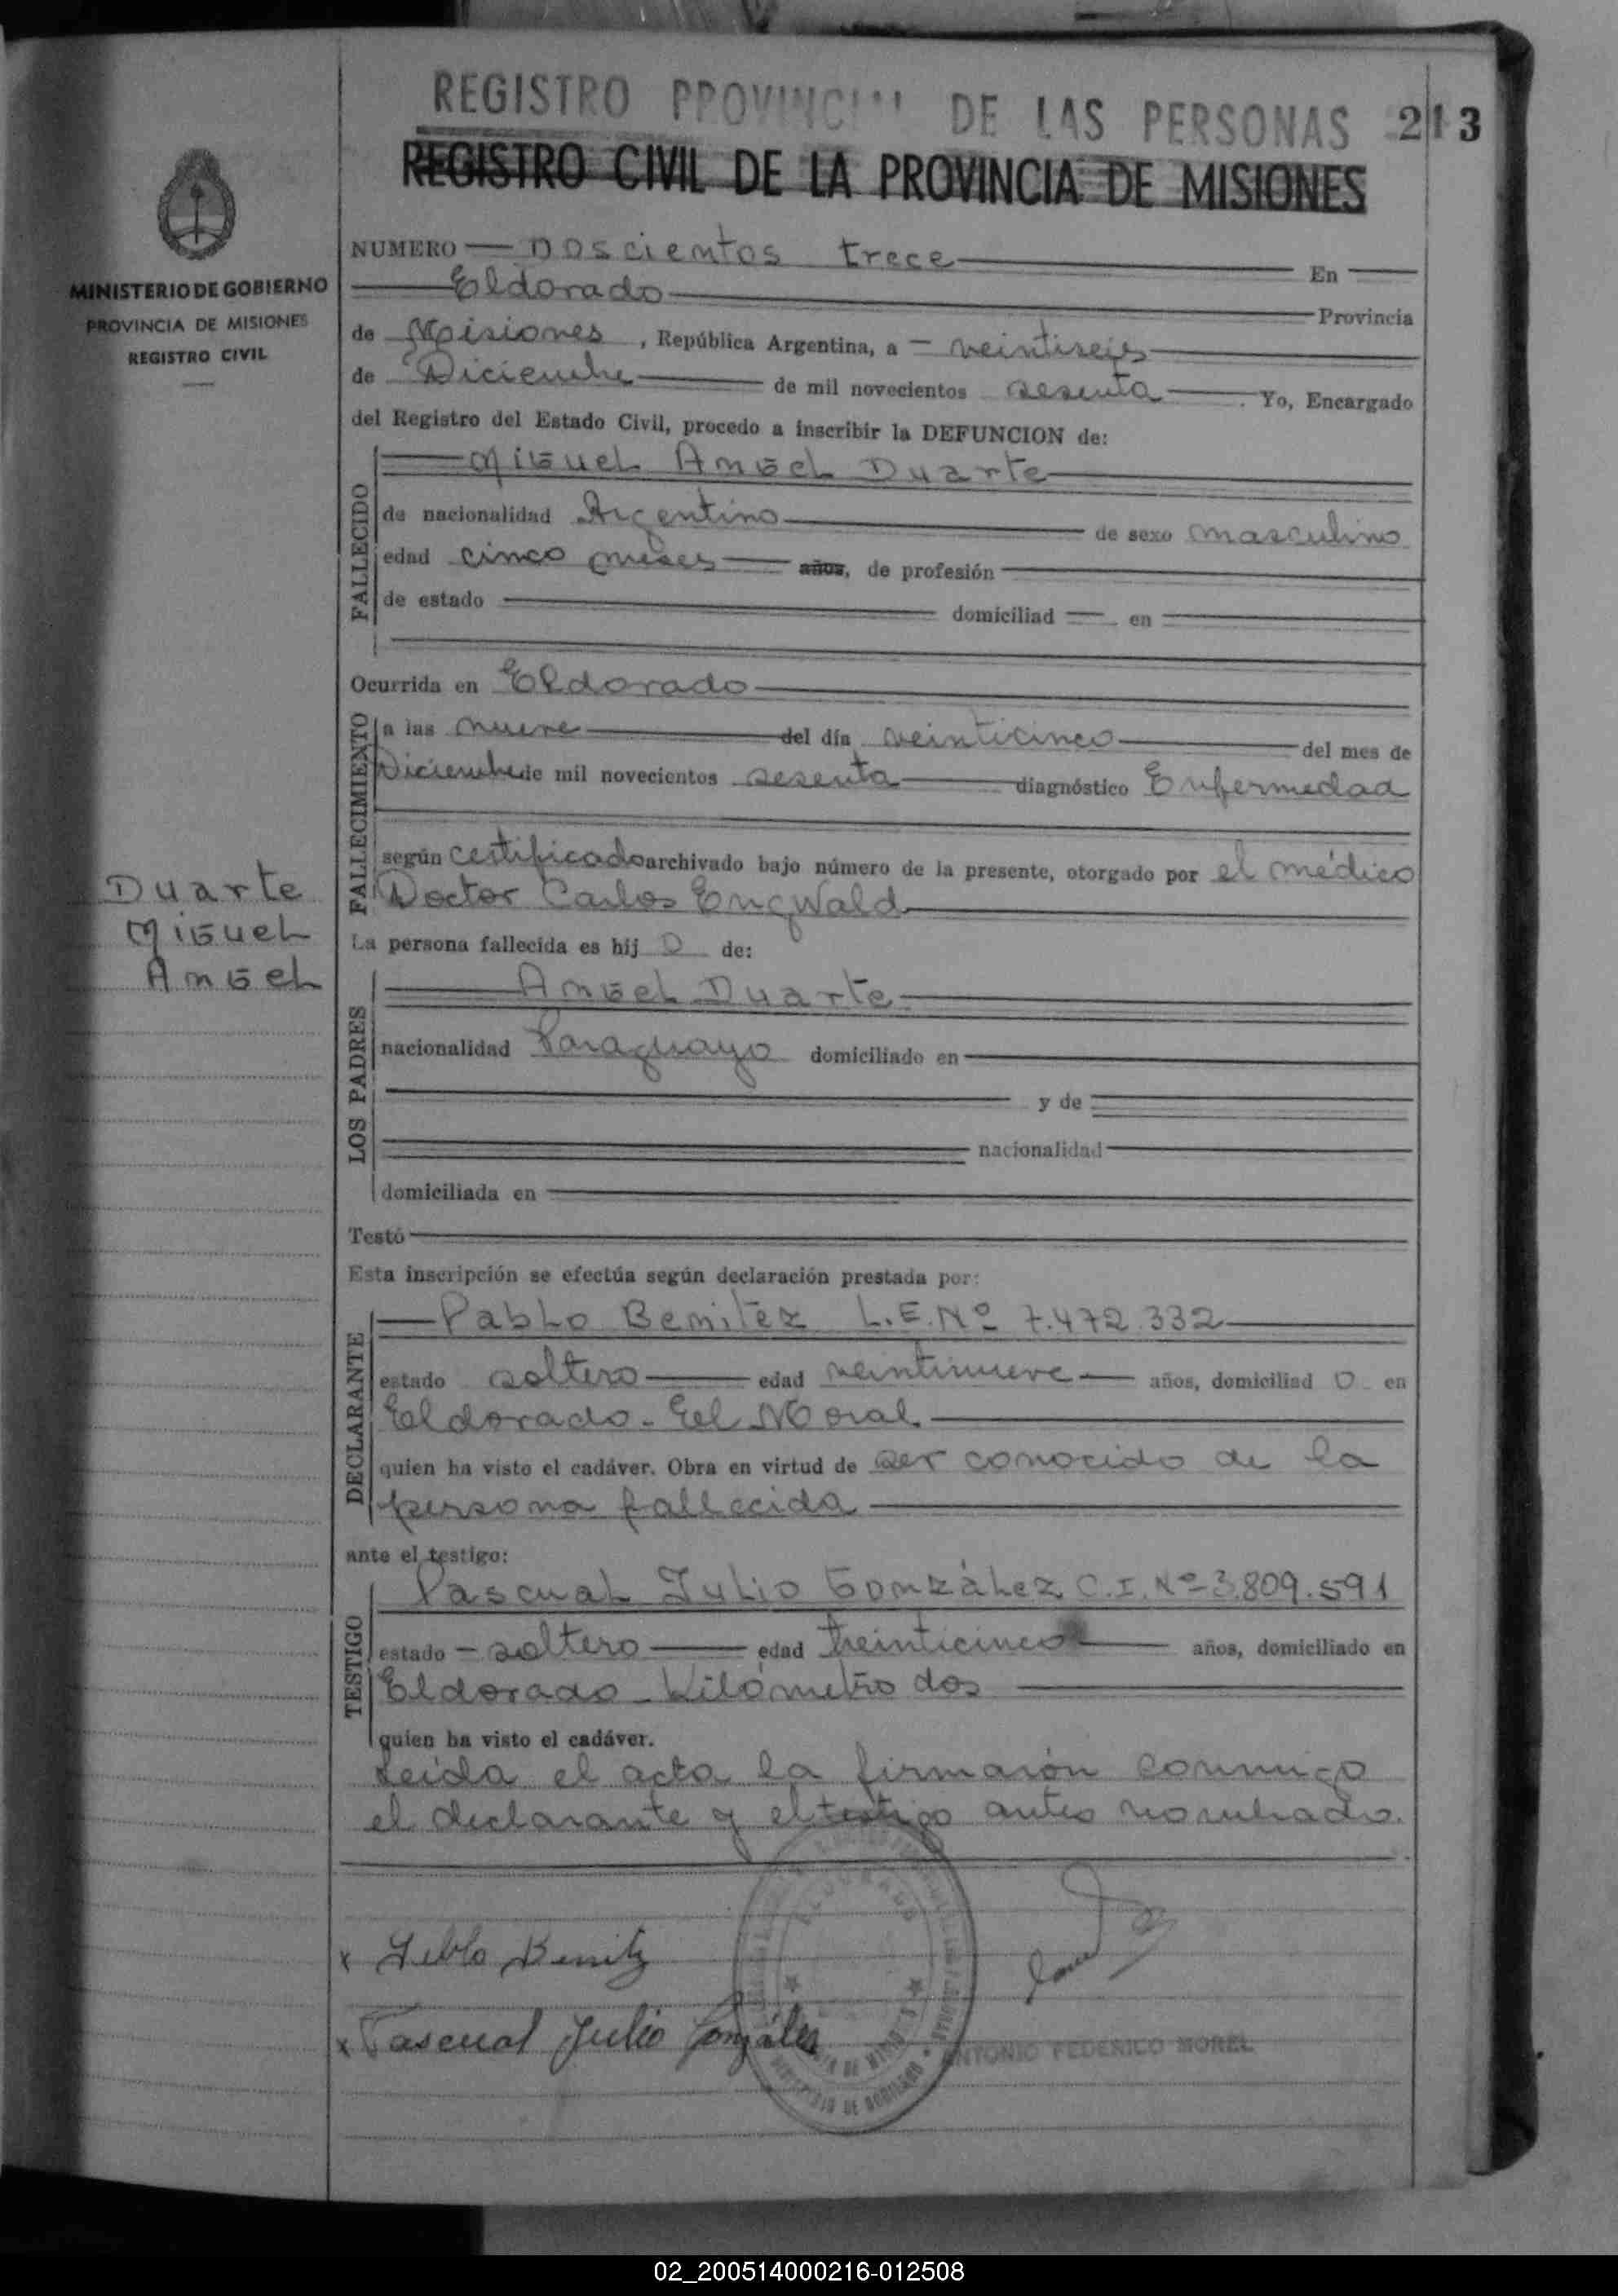 REGISTRO PROVINCIAL DE LAS PERSONAS 213
REGISTRO CIVIL DE LA PROVINCIA DE MISIONES
MINISTERIO DE GOBIERNO
PROVINCIA DE MISIONES
REGISTRO CIVIL
NUMERO Doscientos trece En
Eldorado Provincia
de Misiones, República Argentina, a veintiseis
de Diciembre de mil novecientos sesenta. Yo, Encargado
del Registro del Estado Civil, procedo a inscribir la DEFUNCION de:
FALLECIDO
Miguel Angel Duarte
de nacionalidad Argentino de sexo masculino
edad cinco meses años, de profesión
de estado domiciliad en
Ocurrida en Eldorado
FALLECIMIENTO
a las nueve del día veinticinco del mes de
Diciembre de mil novecientos sesenta diagnóstico Enfermedad
según certificado archivado bajo número de la presente, otorgado por el médico
Doctor Carlos Engwald
Duarte
Miguel
Angel
La persona fallecida es hij o de:
LOS PADRES
Angel Duarte
nacionalidad Paraguayo domiciliado en
y de
nacionalidad
domiciliada en
Testó
Esta inscripción se efectúa según declaración prestada por:
DECLARANTE
Pablo Benitez L.E. Nº 7.472.332
estado soltero edad veintinueve años, domiciliad o en
Eldorado - El Moral
quien ha visto el cadáver. Obra en virtud de ser conocido de la
persona fallecida
ante el testigo:
TESTIGO
Pascual Julio González C.I. Nº 3.809.591
estado soltero edad treinticinco años, domiciliado en
Eldorado - Kilómetro dos
quien ha visto el cadáver.
Leida el acta la firmarón conmigo
el declarante y el testigo antes nombrado.
x Pablo Benitz
x Pascual Julio González
ANTONIO FEDERICO MOREL
02_200514000216-012508